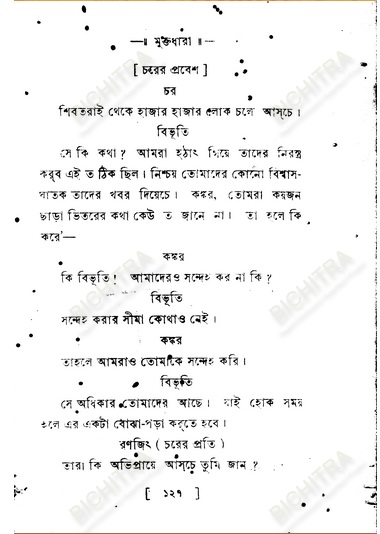 —॥ মুক্তধারা ॥—
[ চরের প্রবেশ ]
চর
শিবতরাই থেকে হাজার হাজার লোক চলে আস্‌চে।
বিভূতি
সে কি কথা? আমরা হঠাৎ গিয়ে তাদের নিরস্ত্র
করব এই ত ঠিক ছিল। নিশ্চয় তোমাদের কোনো বিশ্বাস-
ঘাতক তাদের খবর দিয়েচে। কঙ্কর, তোমরা কয়জন
ছাড়া ভিতরের কথা কেউ ত জানে না। তা হলে কি
করে'—
কঙ্কর
কি বিভূতি! আমাদেরও সন্দেহ কর না কি?
বিভূতি
সন্দেহ করার সীমা কোথাও নেই।
কঙ্কর
তাহলে আমরাও তোমাকে সন্দেহ করি।
বিভূতি
সে অধিকার তোমাদের আছে। যাই হোক সময়
হলে এর একটা বোঝা-পড়া করতে হবে।
রণজিৎ ( চরের প্রতি )
তারা কি অভিপ্রায়ে আস্‌চে তুমি জান?
[ ১২৭ ]
BICHITRA
BICHITRA
BICHITRA
BICHITRA
BICHITRA
BICHITRA